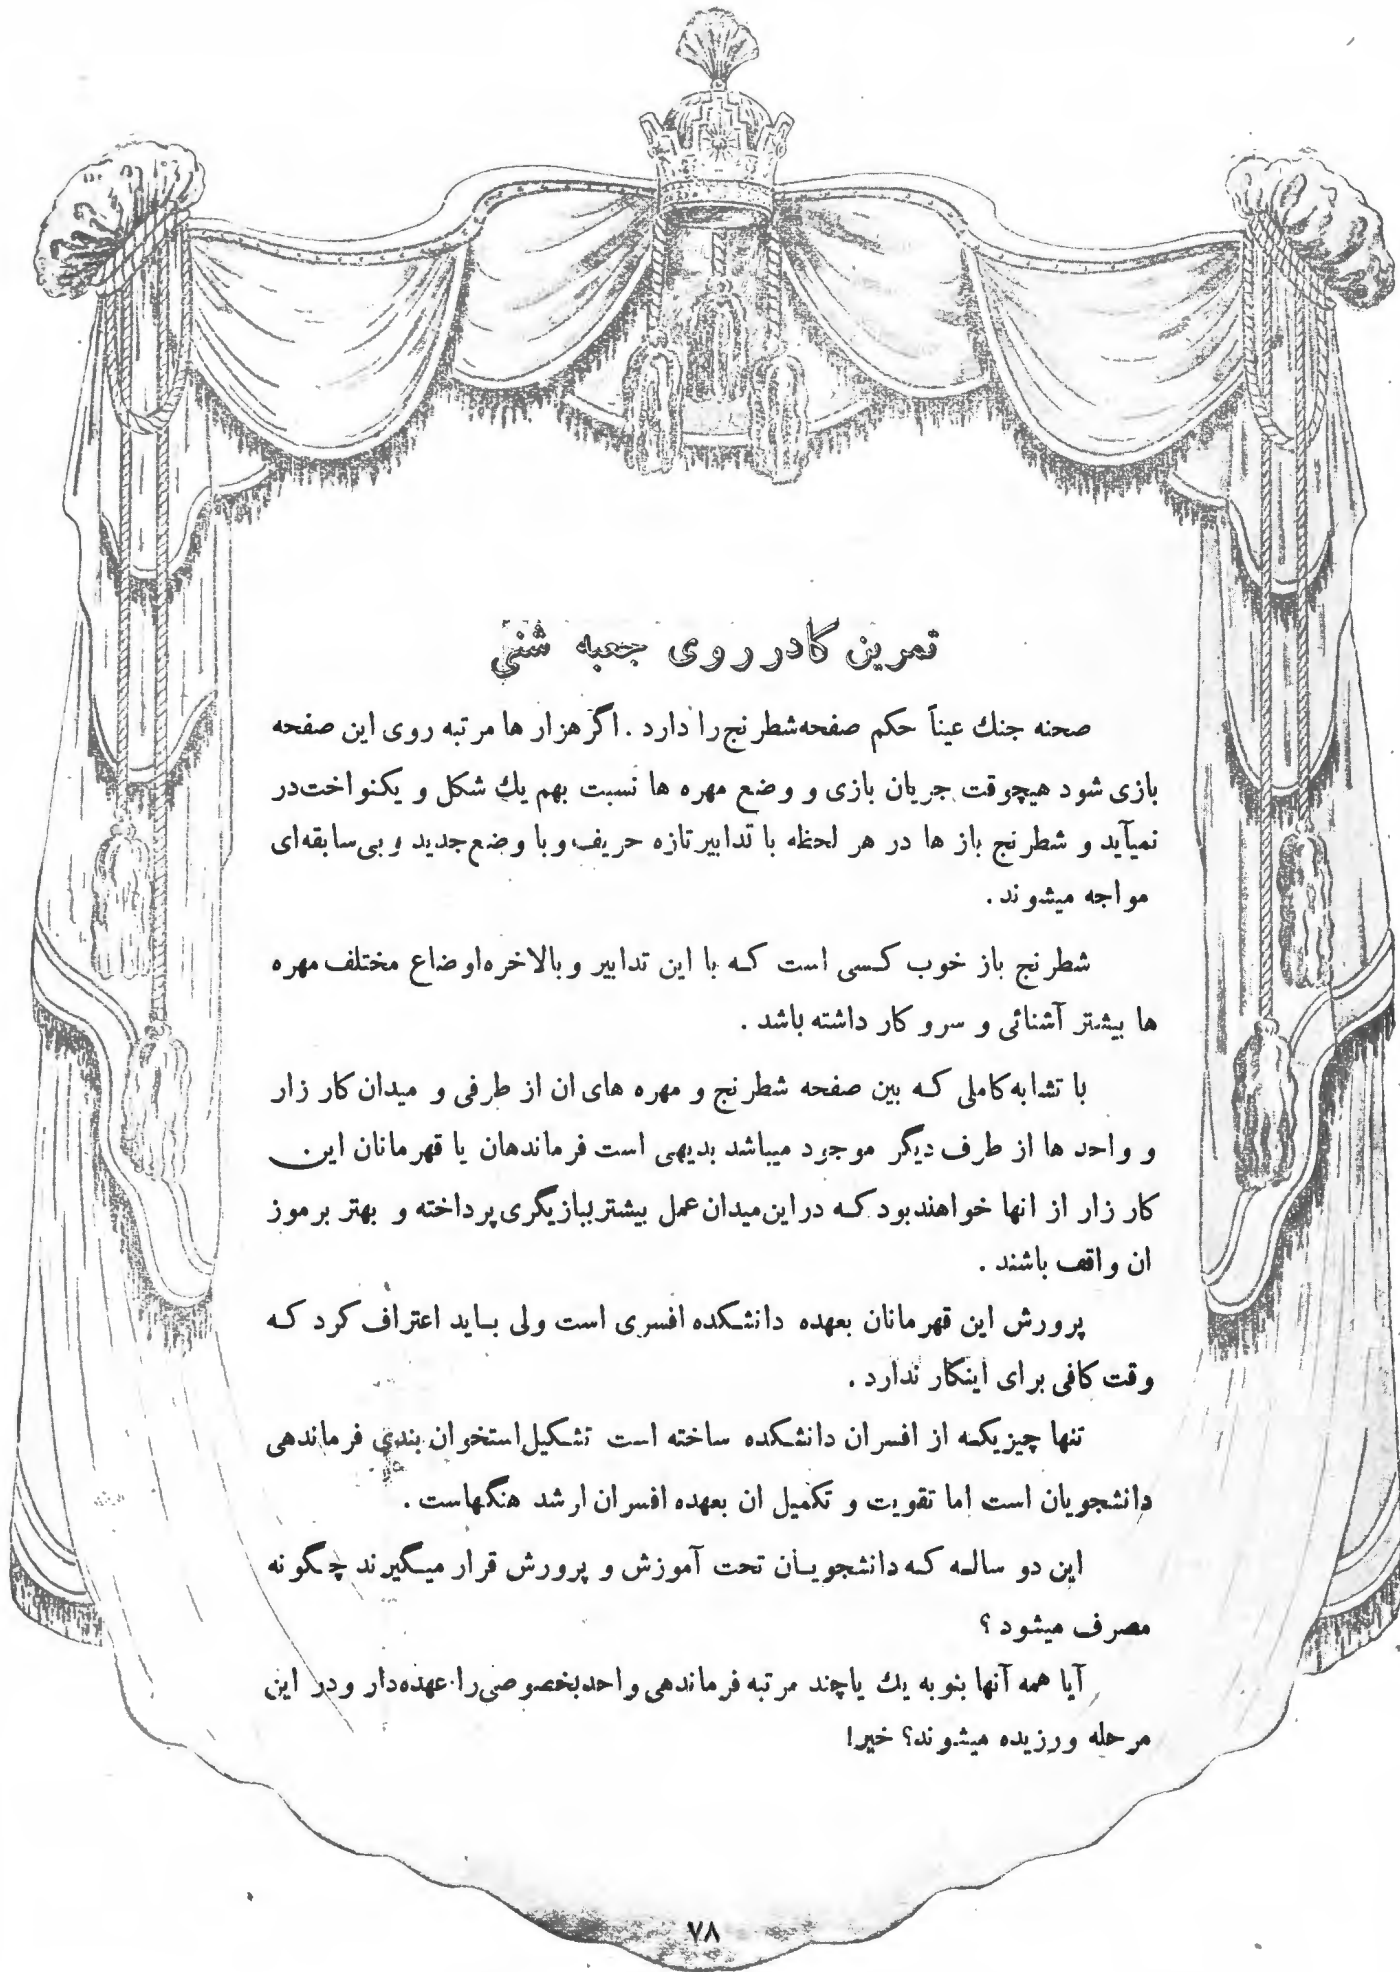 تمرین کادر روی جعبه شنی
صحنه جنك عیناً حکم صفحه شطرنج را دارد . اگر هزار ها مرتبه روی این صفحه
بازی شود هیچوقت جریان بازی و وضع مهره ها نسبت بهم یك شکل و یکنواخت در
نمیآید و شطرنج باز ها در هر لحظه با تدابیر تازه حریف و با وضع جدید و بی سابقه ای
مواجه میشوند .
شطرنج باز خوب کسی است که با این تدابیر و بالاخره اوضاع مختلف مهره
ها بیشتر آشنائی و سرو کار داشته باشد .
با تشابه کاملی که بین صفحه شطرنج و مهره های ان از طرفی و میدان کار زار
و واحد ها از طرف دیگر موجود میباشد بدیهی است فرماندهان یا قهرمانان این
کار زار از انها خواهند بود که در این میدان عمل بیشتر ببازیگری پرداخته و بهتر برموز
ان واقف باشند .
پرورش این قهرمانان بعهده دانشکده افسری است ولی باید اعتراف کرد که
وقت کافی برای اینکار ندارد .
تنها چیزیکه از افسران دانشکده ساخته است تشکیل استخوان بندی فرماندهی
دانشجویان است اما تقویت و تکمیل ان بعهده افسران ارشد هنگهاست .
این دو ساله که دانشجویان تحت آموزش و پرورش قرار میگیرند چگونه
مصرف میشود ؟
آیا همه آنها بنوبه یك یا چند مرتبه فرماندهی واحد بخصوصی را عهده دار و در این
مرحله ورزیده میشوند؟ خیر!
۷۸